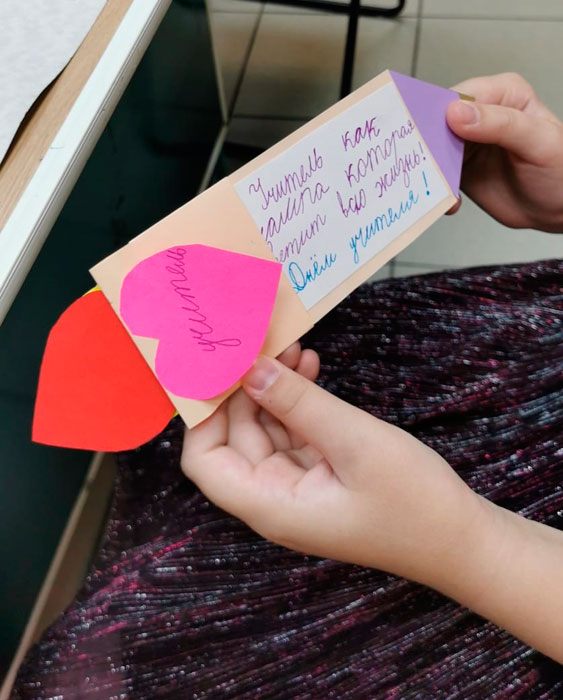 Учитель как
лампа которая
етит всю жизнь!
Днём учителя!
учитель